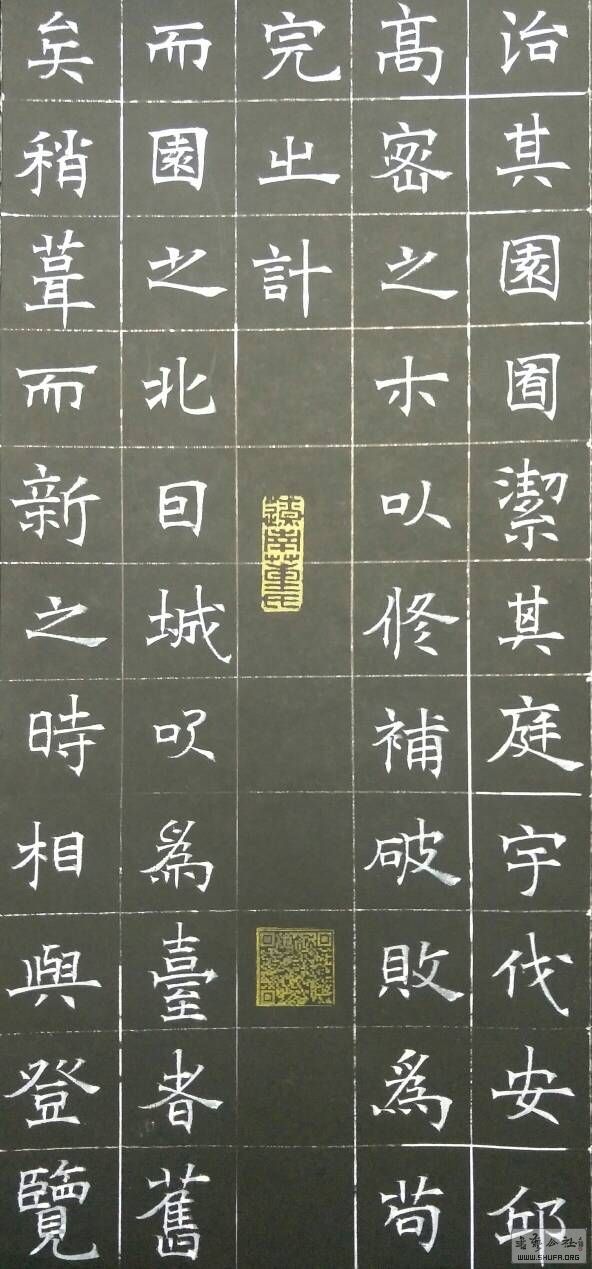 治其園囿潔其庭宇伐安邱
髙密之木以修補破敗爲苟
完之計
而園之北囙城以爲臺者舊
矣稍葺而新之時相與登覽
書藝公社
WWW.SHUFA.ORG